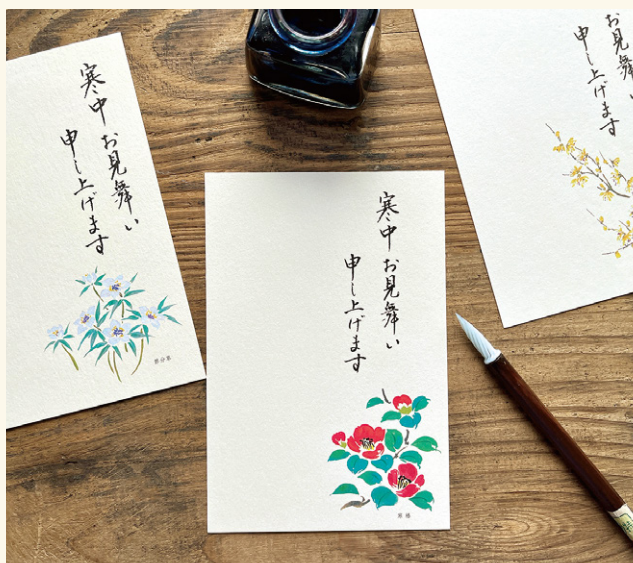 寒中お見舞い
申し上げます
節分草
寒中お見舞い
申し上げます
寒椿
お見舞い
申し上げます